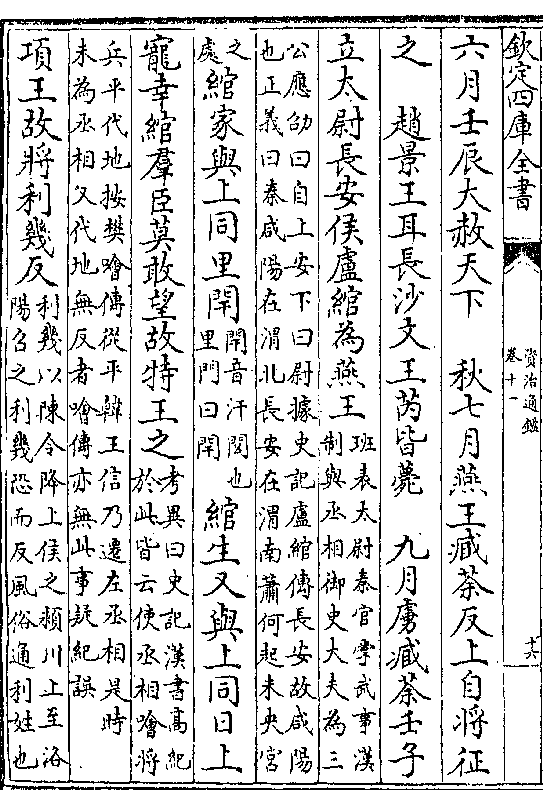 欽定四庫全書
資治通鑑
卷十一
十六
六月壬辰大赦天下　秋七月燕王臧荼反上自將征
之　趙景王耳長沙文王芮皆薨　九月虜臧荼壬子
立太尉長安侯盧綰為燕王
班表太尉秦官掌武事漢
制與丞相御史大夫為三
公應劭曰自上安下曰尉據史記盧綰傳長安故咸陽
也正義曰秦咸陽在渭北長安在渭南蕭何起未央宮
之
處
綰家與上同里閈
閈音汗閭也
里門曰閈
綰生又與上同日上
寵幸綰羣臣莫敢望故特王之
考異曰史記漢書髙紀
於此皆云使丞相噲將
兵平代地按樊噲傳從平韓王信乃遷左丞相是時
未為丞相又代地無反者噲傳亦無此事疑紀誤
項王故將利幾反
利幾以陳令降上侯之頴川上至洛
陽召之利幾恐而反風俗通利姓也